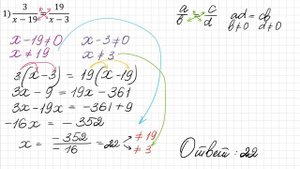 1) 3/(x − 19) = 19/(x − 3)
a/b = c/d ad = cb
b≠0 d≠0
x − 19 ≠ 0 x − 3 ≠ 0
x ≠ 19 x ≠ 3
3(x − 3) = 19(x − 19)
3x − 9 = 19x − 361
3x − 19x = −361 + 9
−16x = − 352
x = −352/−16 = 22 ≠ 19 ≠ 3
Ответ: 22